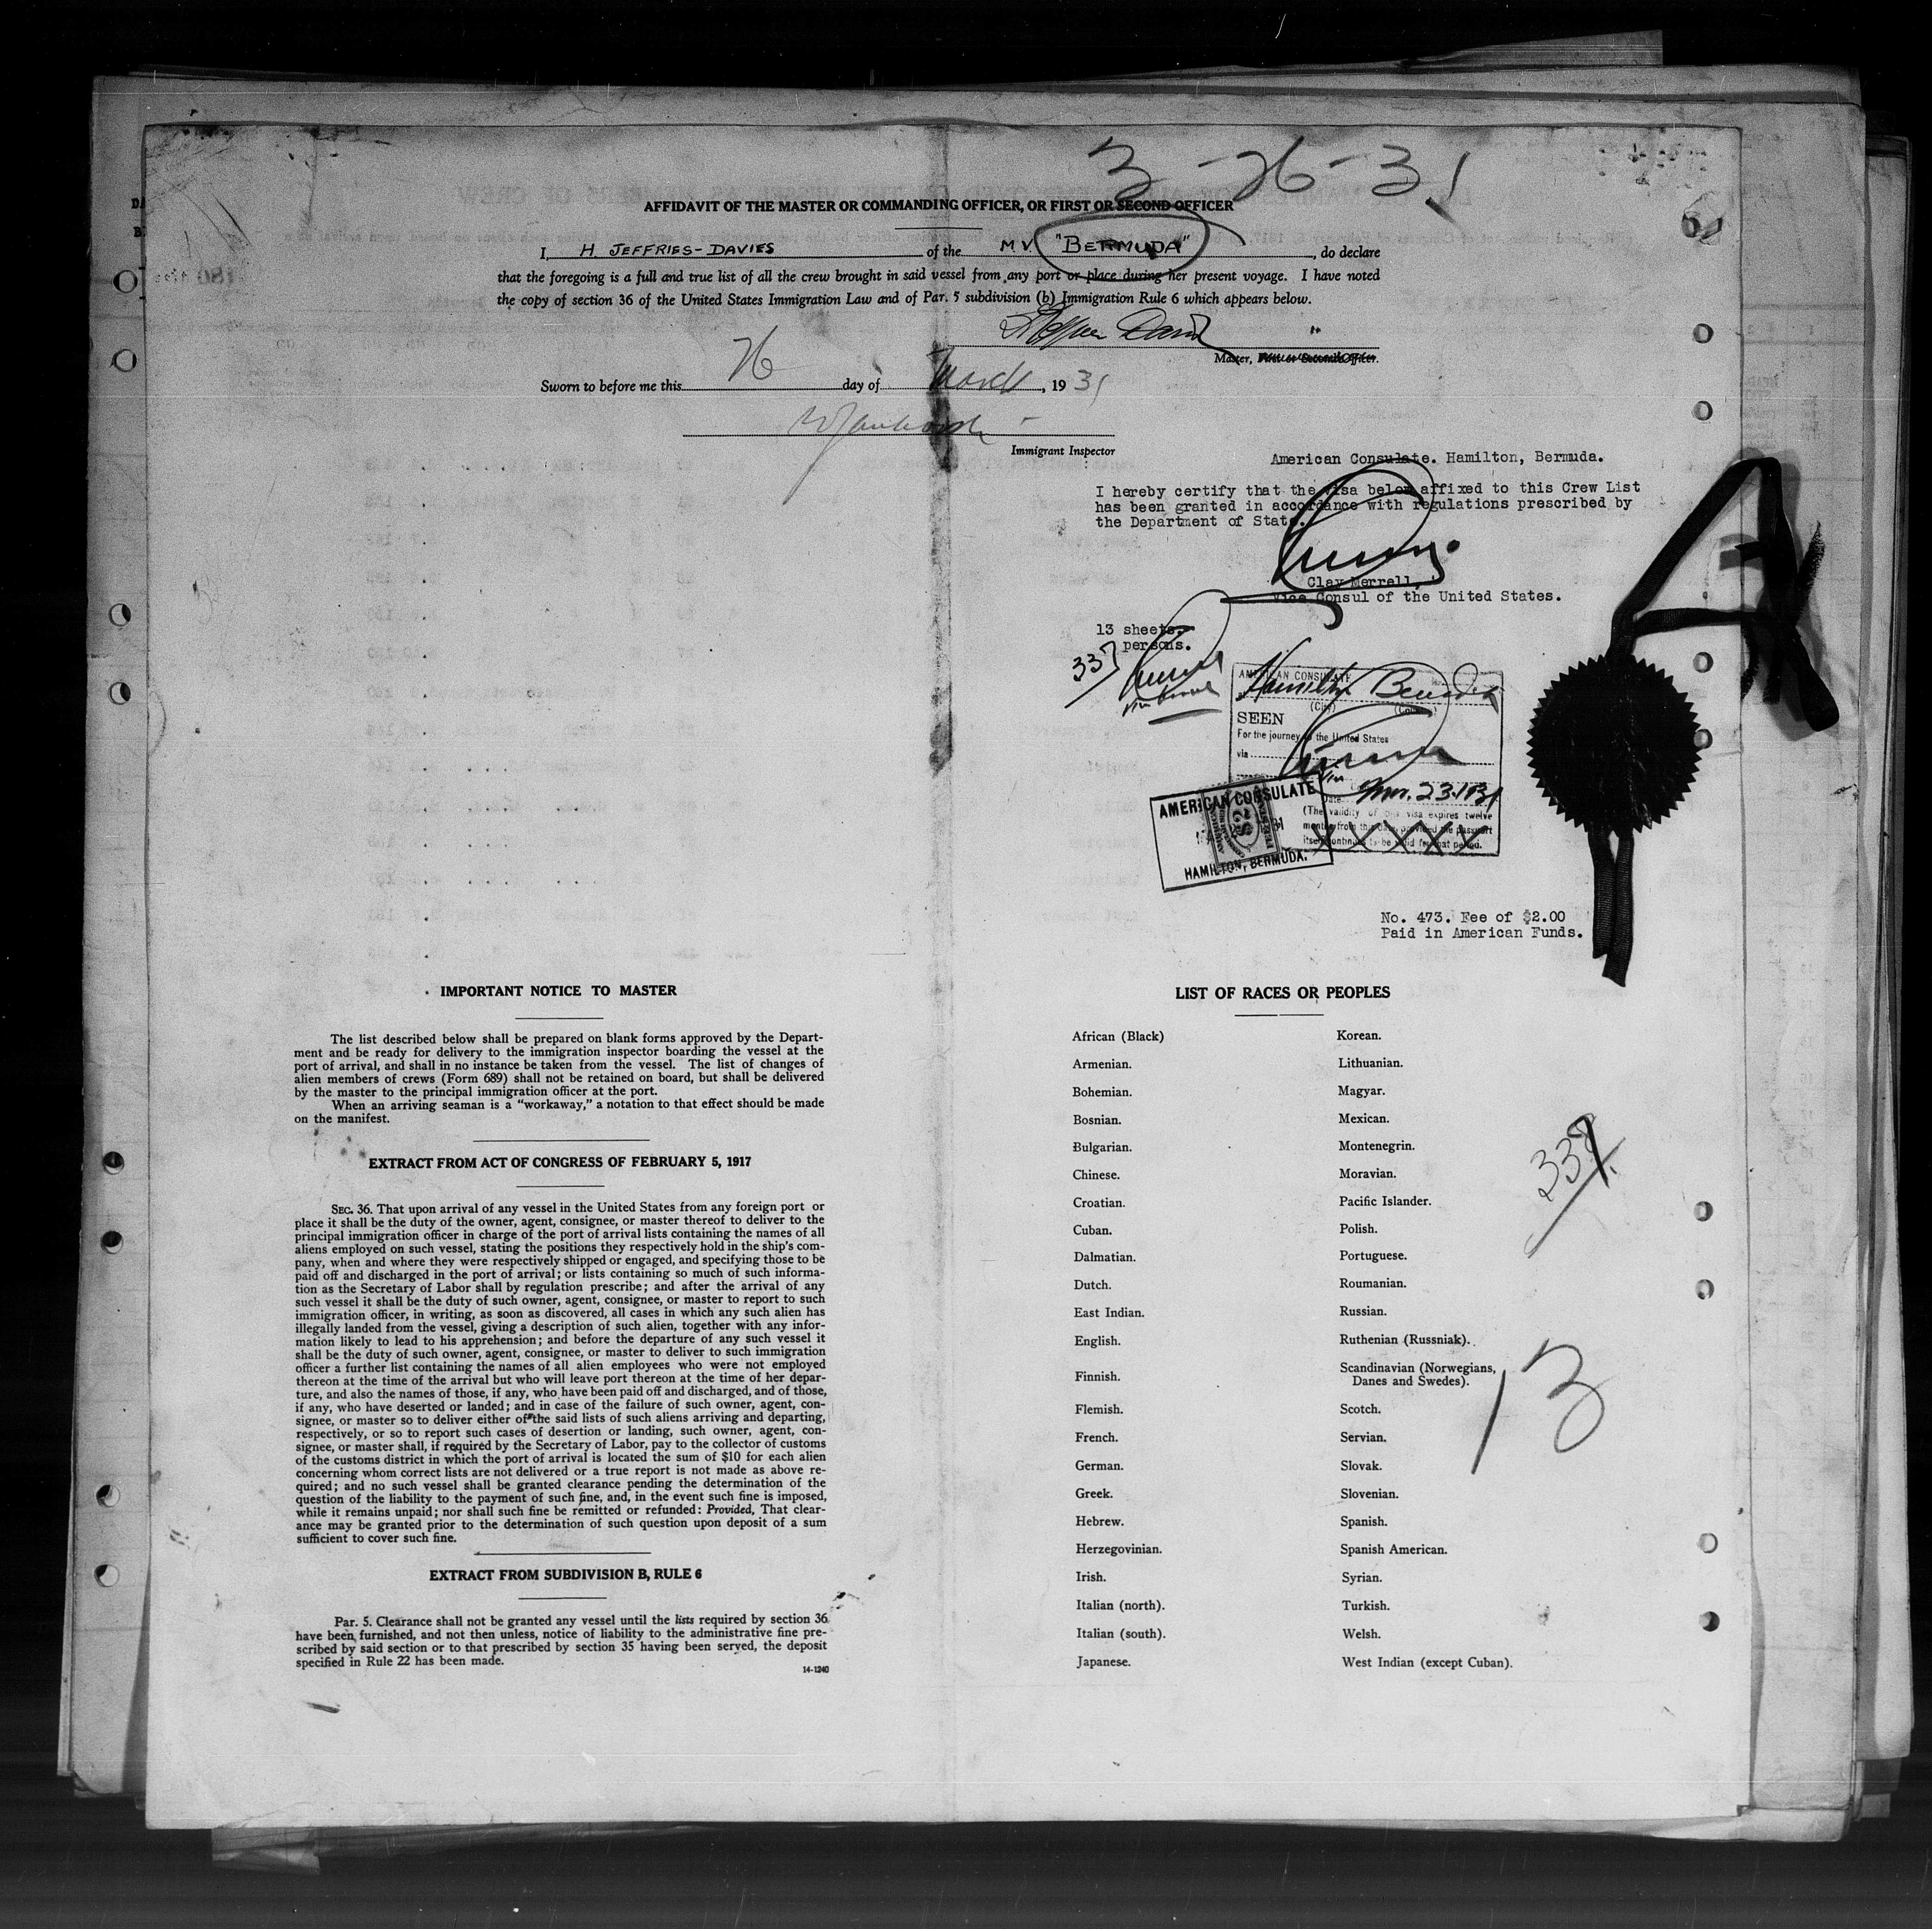 3-26-31
AFFIDAVIT OF THE MASTER OR COMMANDING OFFICER, OR FIRST OR SECOND OFFICER
I, H. JEFFRIES-DAVIES of the M.V. "BERMUDA", do declare
that the foregoing is a full and true list of all the crew brought in said vessel from any port or place during her present voyage. I have noted
the copy of section 36 of the United States Immigration Law and of Par. 5 subdivision (b) Immigration Rule 6 which appears below.
Master, First or Second Officer.
Sworn to before me this 26 day of March, 1931
Immigrant Inspector
American Consulate. Hamilton, Bermuda.
I hereby certify that the visa below affixed to this Crew List
has been granted in accordance with regulations prescribed by
the Department of State.
Clay Merrell,
Vice Consul of the United States.
13 sheets.
337 persons.
AMERICAN CONSULATE
Hamilton Bermuda
(City) (Country)
SEEN
For the journey to the United States
via
Date Mar. 23. 1931
(The validity of this visa expires twelve
months from this date provided the passport
itself continues to be valid for that period.
XXXXX
AMERICAN CONSULATE
$2
HAMILTON, BERMUDA.
No. 473. Fee of $2.00
Paid in American Funds.
IMPORTANT NOTICE TO MASTER
The list described below shall be prepared on blank forms approved by the Depart-
ment and be ready for delivery to the immigration inspector boarding the vessel at the
port of arrival, and shall in no instance be taken from the vessel. The list of changes of
alien members of crews (Form 689) shall not be retained on board, but shall be delivered
by the master to the principal immigration officer at the port.
When an arriving seaman is a "workaway," a notation to that effect should be made
on the manifest.
EXTRACT FROM ACT OF CONGRESS OF FEBRUARY 5, 1917
SEC. 36. That upon arrival of any vessel in the United States from any foreign port or
place it shall be the duty of the owner, agent, consignee, or master thereof to deliver to the
principal immigration officer in charge of the port of arrival lists containing the names of all
aliens employed on such vessel, stating the positions they respectively hold in the ship's com-
pany, when and where they were respectively shipped or engaged, and specifying those to be
paid off and discharged in the port of arrival; or lists containing so much of such informa-
tion as the Secretary of Labor shall by regulation prescribe; and after the arrival of any
such vessel it shall be the duty of such owner, agent, consignee, or master to report to such
immigration officer, in writing, as soon as discovered, all cases in which any such alien has
illegally landed from the vessel, giving a description of such alien, together with any infor-
mation likely to lead to his apprehension; and before the departure of any such vessel it
shall be the duty of such owner, agent, consignee, or master to deliver to such immigration
officer a further list containing the names of all alien employees who were not employed
thereon at the time of the arrival but who will leave port thereon at the time of her depar-
ture, and also the names of those, if any, who have been paid off and discharged, and of those,
if any, who have deserted or landed; and in case of the failure of such owner, agent, con-
signee, or master so to deliver either of the said lists of such aliens arriving and departing,
respectively, or so to report such cases of desertion or landing, such owner, agent, con-
signee, or master shall, if required by the Secretary of Labor, pay to the collector of customs
of the customs district in which the port of arrival is located the sum of $10 for each alien
concerning whom correct lists are not delivered or a true report is not made as above re-
quired; and no such vessel shall be granted clearance pending the determination of the
question of the liability to the payment of such fine, and, in the event such fine is imposed,
while it remains unpaid; nor shall such fine be remitted or refunded: Provided, That clear-
ance may be granted prior to the determination of such question upon deposit of a sum
sufficient to cover such fine.
EXTRACT FROM SUBDIVISION B, RULE 6
Par. 5. Clearance shall not be granted any vessel until the lists required by section 36
have been furnished, and not then unless, notice of liability to the administrative fine pre-
scribed by said section or to that prescribed by section 35 having been served, the deposit
specified in Rule 22 has been made.
14-1240
LIST OF RACES OR PEOPLES
African (Black)
Armenian.
Bohemian.
Bosnian.
Bulgarian.
Chinese.
Croatian.
Cuban.
Dalmatian.
Dutch.
East Indian.
English.
Finnish.
Flemish.
French.
German.
Greek.
Hebrew.
Herzegovinian.
Irish.
Italian (north).
Italian (south).
Japanese.
Korean.
Lithuanian.
Magyar.
Mexican.
Montenegrin.
Moravian.
Pacific Islander.
Polish.
Portuguese.
Roumanian.
Russian.
Ruthenian (Russniak).
Scandinavian (Norwegians,
Danes and Swedes).
Scotch.
Servian.
Slovak.
Slovenian.
Spanish.
Spanish American.
Syrian.
Turkish.
Welsh.
West Indian (except Cuban).
337
13